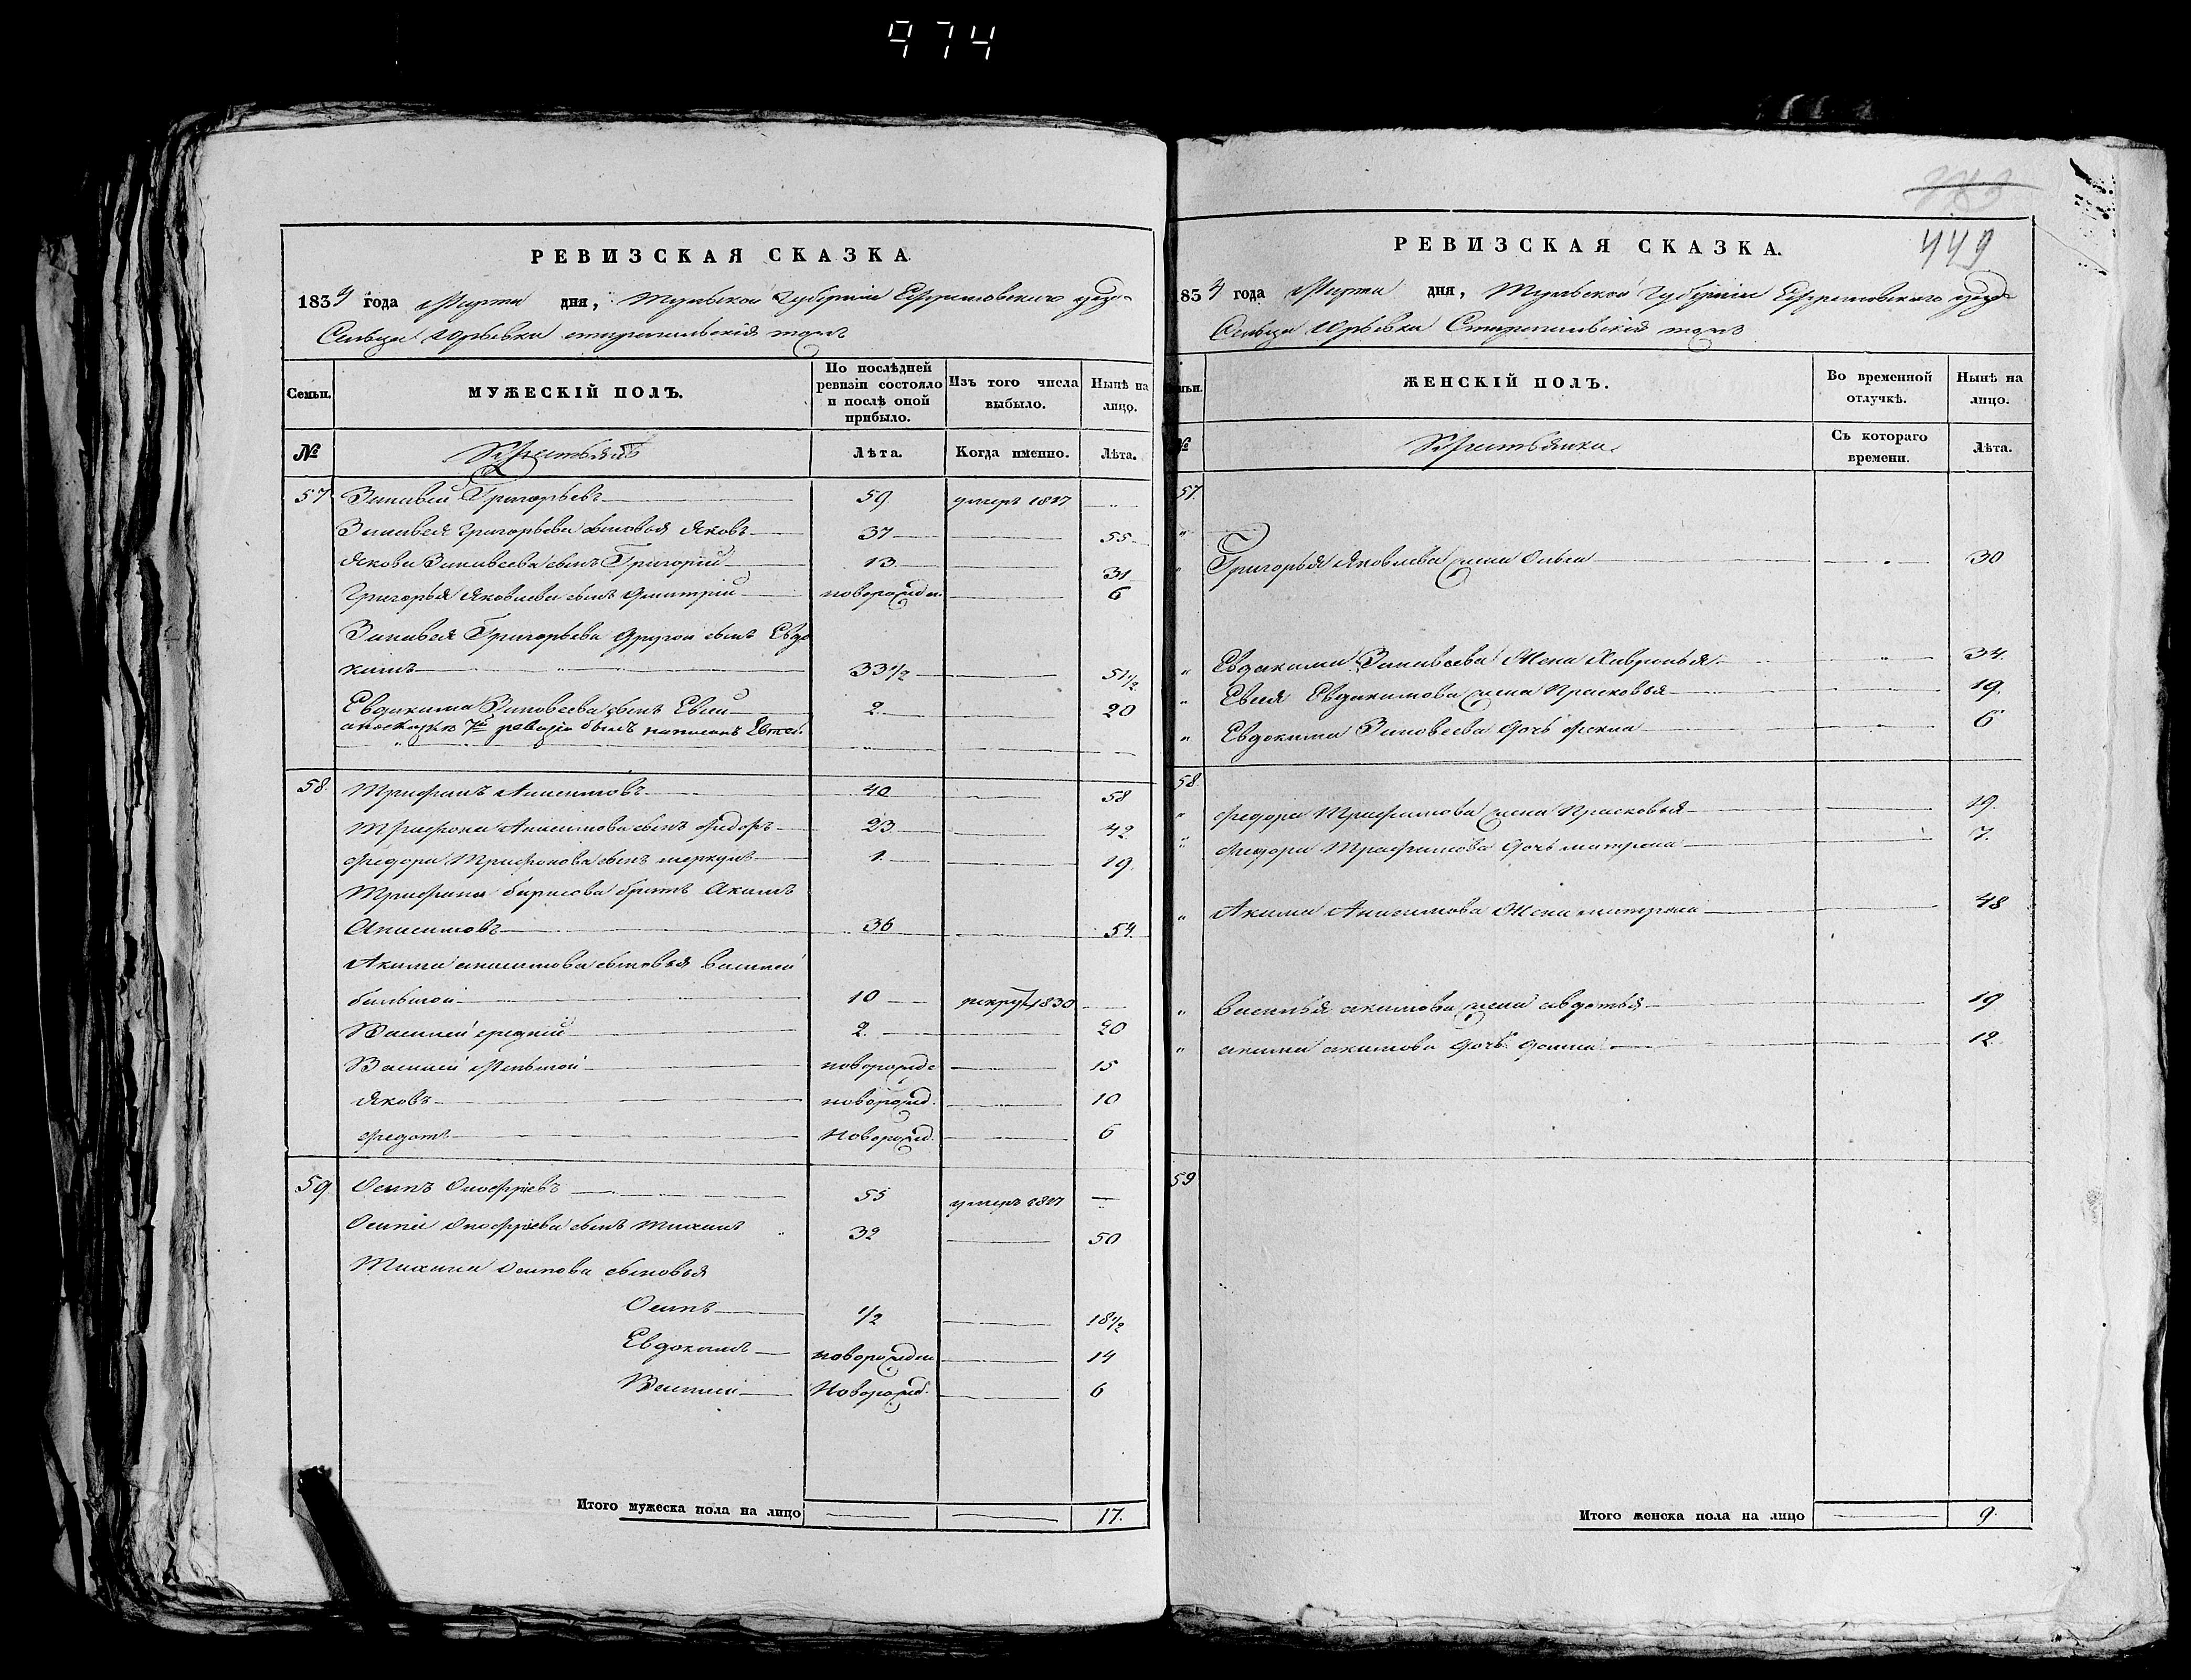 974
РЕВИЗСКАЯ СКАЗКА
1834 года Марта дня, Тульской Губернии Ефремовского уезда
Сельца Юрьевка
Семьи.
МУЖЕСКІЙ ПОЛЪ.
По послѣдней ревизіи состояло и послѣ оной прибыло.
Изъ того числа выбыло.
Нынѣ на лицо.
№
Лѣта.
Когда именно.
Лѣта.
57 Зиновей Григорьевъ 59 умеръ 1827
Зиновея Григорьева сыновья Яковъ 37 55
Якова Зиновеева сынъ Григорий 13 31
Григорья Яковлева сынъ Дмитрий новорожден 6
Зиновея Григорьева другой сынъ Евдо
кимъ 33 1/2 51 1/2
Евдокима Зиновеева сынъ Евсей 2 20
7й ревизіи былъ написанъ
58 Трифанъ Анисимовъ 40 58
Трифона Анисимова сынъ Федоръ 23 42
Федора Трифонова сынъ меркулъ 1 19
Трифана борисова братъ Акимъ
Анисимовъ 36 54
Акима анисимова сыновья Василей
большой 10 рекрут 1830
Василей средний 2 20
Василей Меньшой новорожде 15
Яковъ новорожд. 10
Федотъ Новорожд. 6
59 Осипъ Онофріевъ 55 умеръ 1827
Осипа Онофріева сынъ Тихинъ 32 50
Тихина Осипова сыновья
Осипъ 1/2 18 1/2
Евдокимъ новорожден 14
Василий Новорожд. 6
Итого мужеска пола на лицо 17.
449
РЕВИЗСКАЯ СКАЗКА.
1834 года Марта дня, Тульской Губернии Ефремовского уезда
Сельца Юрьевка
ЖЕНСКІЙ ПОЛЪ.
Во временной отлучкѣ.
Нынѣ на лицо.
№
Съ котораго времени.
Лѣта.
57.
Григорья Яковлева жена Ольга 30
Евдокима Зиновеева Жена Хавронья 34.
Евсея Евдокимова жена Прасковья 19.
Евдокима Зиновеева дочь Фекла 6
58.
Федора Трифонова жена Прасковья 19.
Федора Трифонова дочь матрена 7.
Акима Анисимова Жена матрена 48
Василья акимова жена авдотья 19
акима акимова дочь домна 12
59
Итого женска пола на лицо 9.